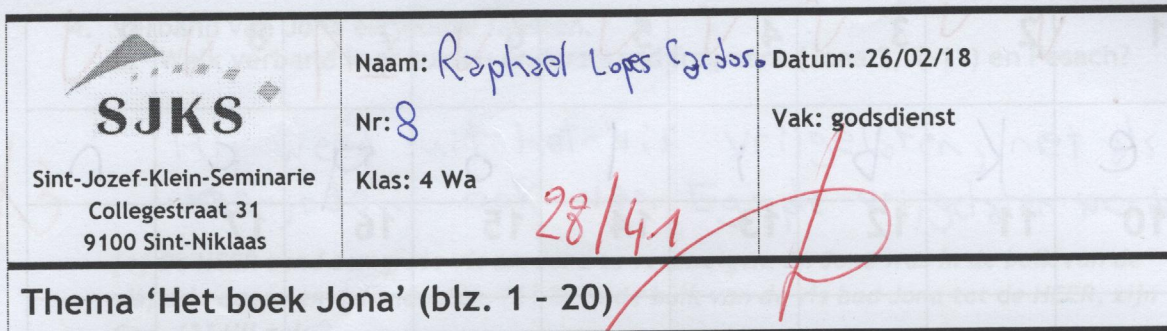 SJKS
Sint-Jozef-Klein-Seminarie
Collegestraat 31
9100 Sint-Niklaas
Naam: Raphael Lopes Cardoso
Nr: 8
Klas: 4 Wa
28/41
Datum: 26/02/18
Vak: godsdienst
Thema 'Het boek Jona' (blz. 1 - 20)